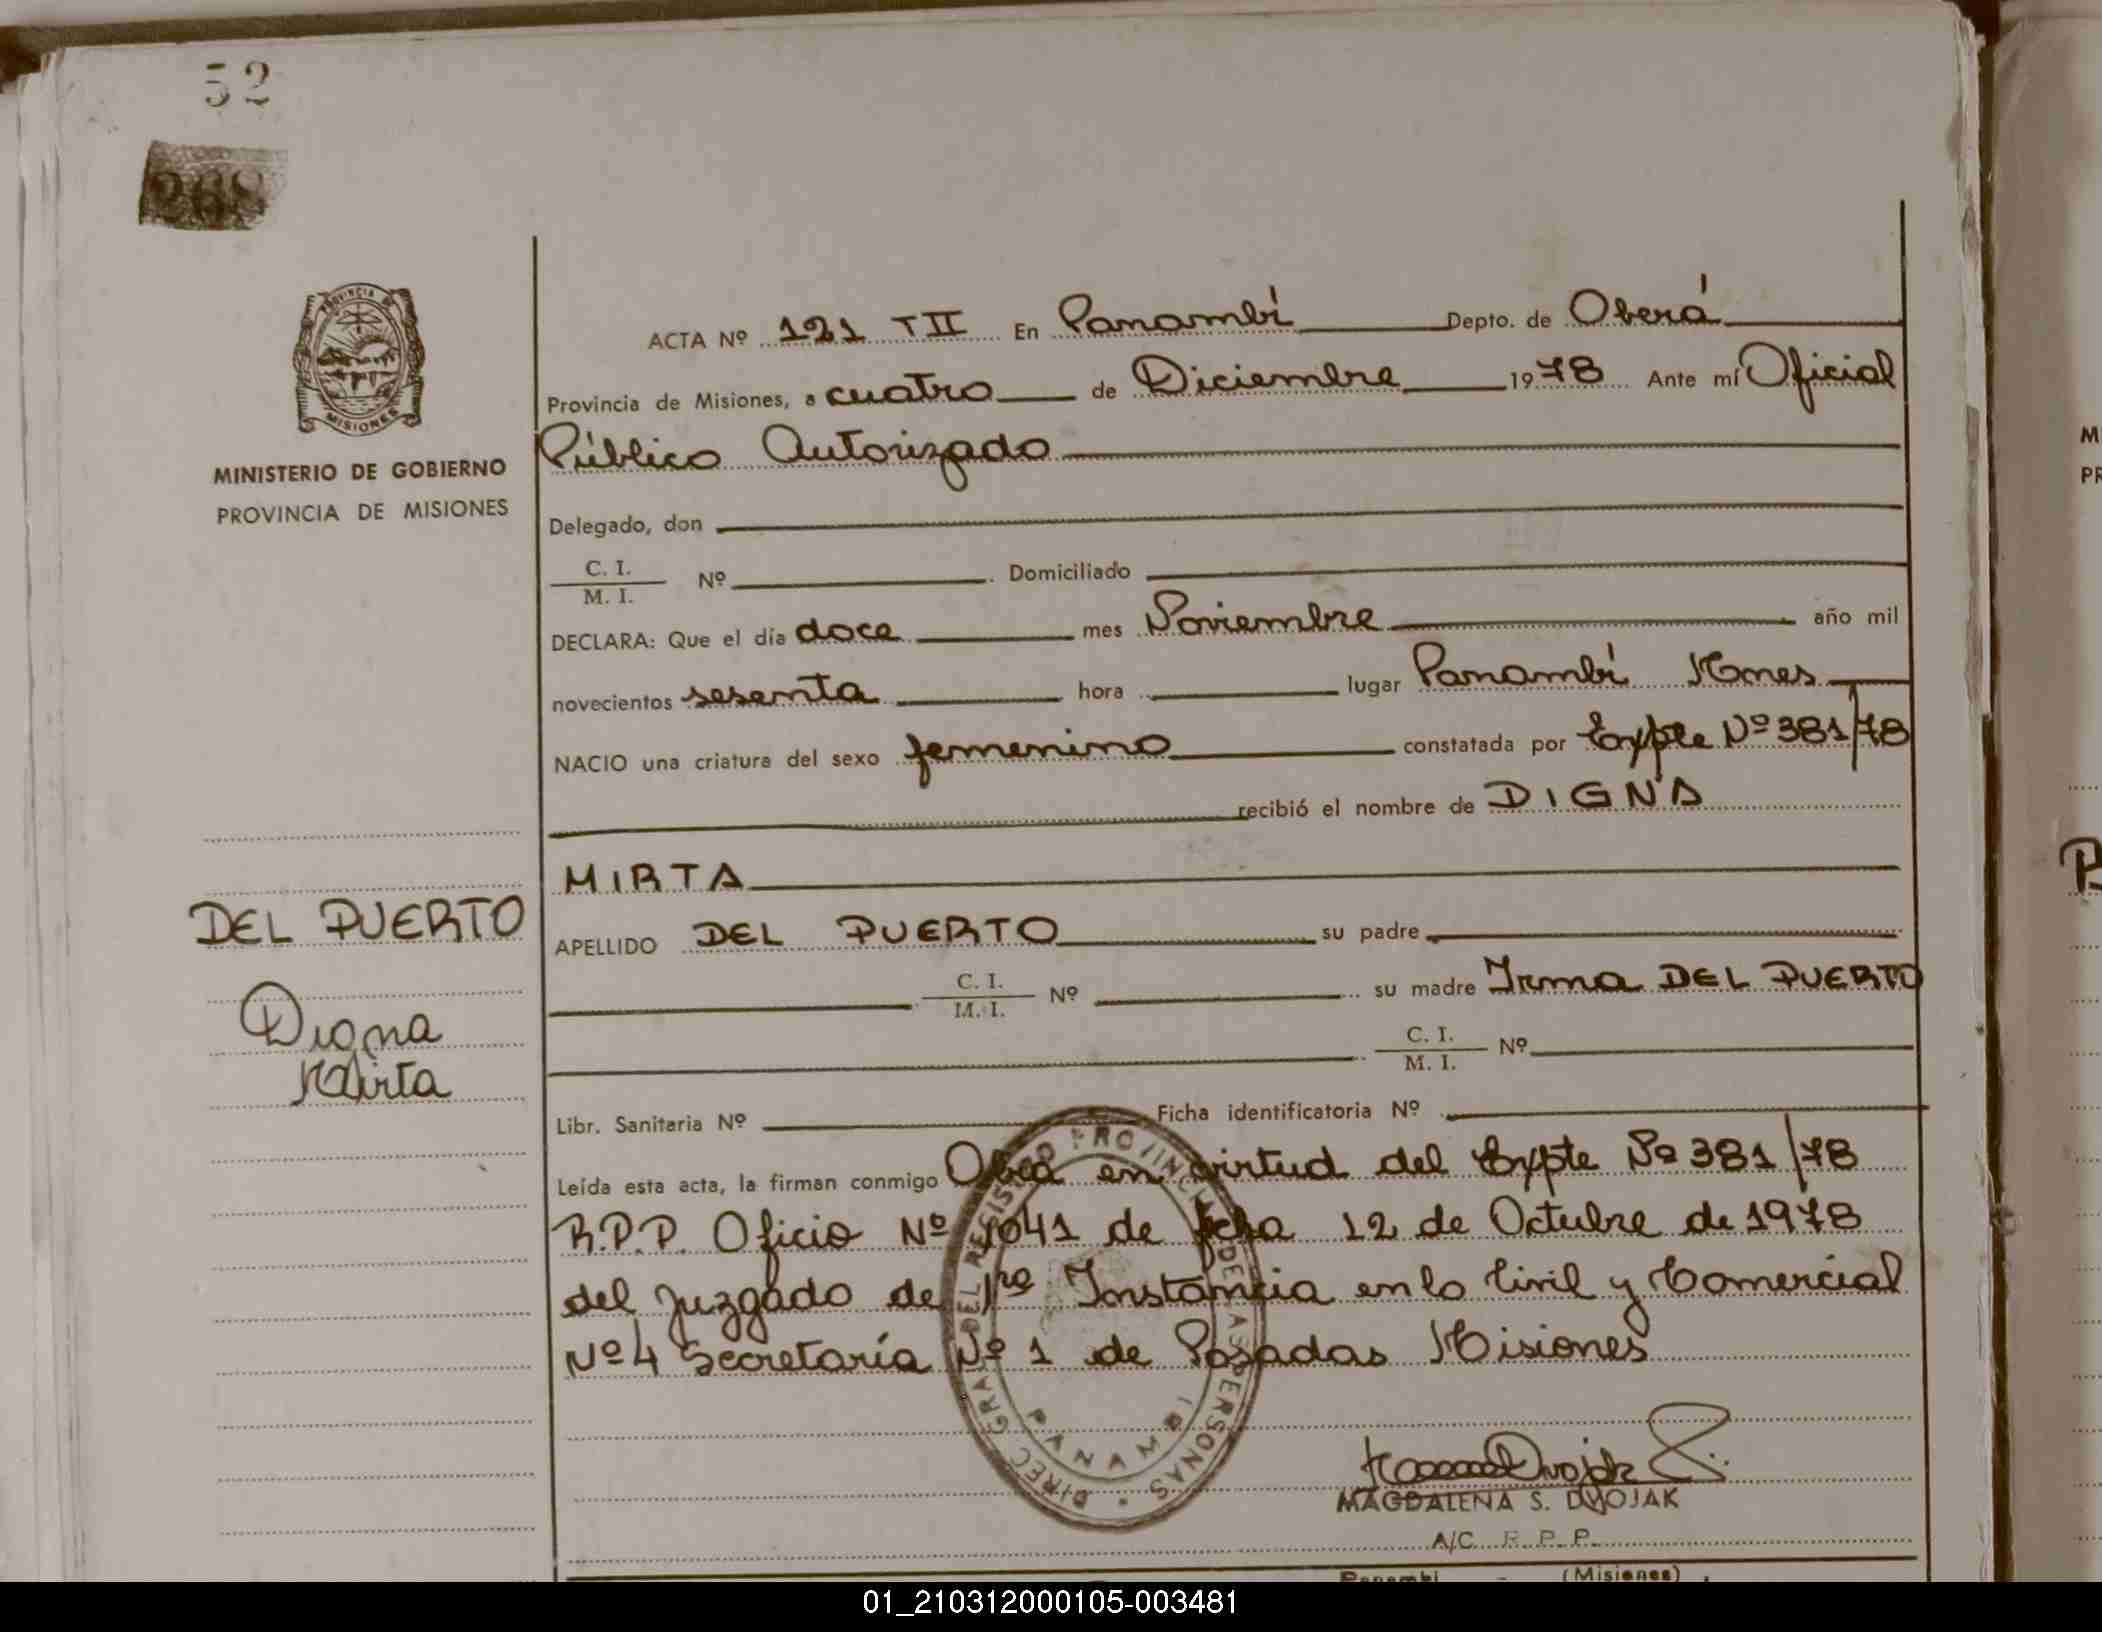 52
268
PROVINCIA DE
MISIONES
MINISTERIO DE GOBIERNO
PROVINCIA DE MISIONES
ACTA Nº 121 TII En Panambí Depto. de Oberá
Provincia de Misiones, a cuatro de Diciembre 1978 Ante mí Oficial
Público Autorizado
Delegado, don
C. I.
M. I.
Nº Domiciliado
DECLARA: Que el día doce mes Noviembre año mil
novecientos sesenta hora lugar Panambí Mnes
NACIO una criatura del sexo femenino constatada por Expte Nº 381/78
recibió el nombre de DIGNA
MIRTA
DEL PUERTO
Digna
Mirta
APELLIDO DEL PUERTO su padre
C. I.
M. I.
Nº su madre Irma DEL PUERTO
C. I.
M. I.
Nº
Libr. Sanitaria Nº Ficha identificatoria Nº
Leída esta acta, la firman conmigo Obra en virtud del Expte Nº 381/78
R.P.P. Oficio Nº 1041 de fcha 12 de Octubre de 1978
del juzgado de 1ra Instancia en lo Civil y Comercial
Nº 4 Secretaría Nº 1 de Posadas Misiones
DIREC GRAL DEL REGISTRO PROVINCIAL DE LAS PERSONAS
PANAMBI
MAGDALENA S. DVOJAK
A/C R. P. P.
Panambí - (Misiones)
M
PR
P
01_210312000105-003481